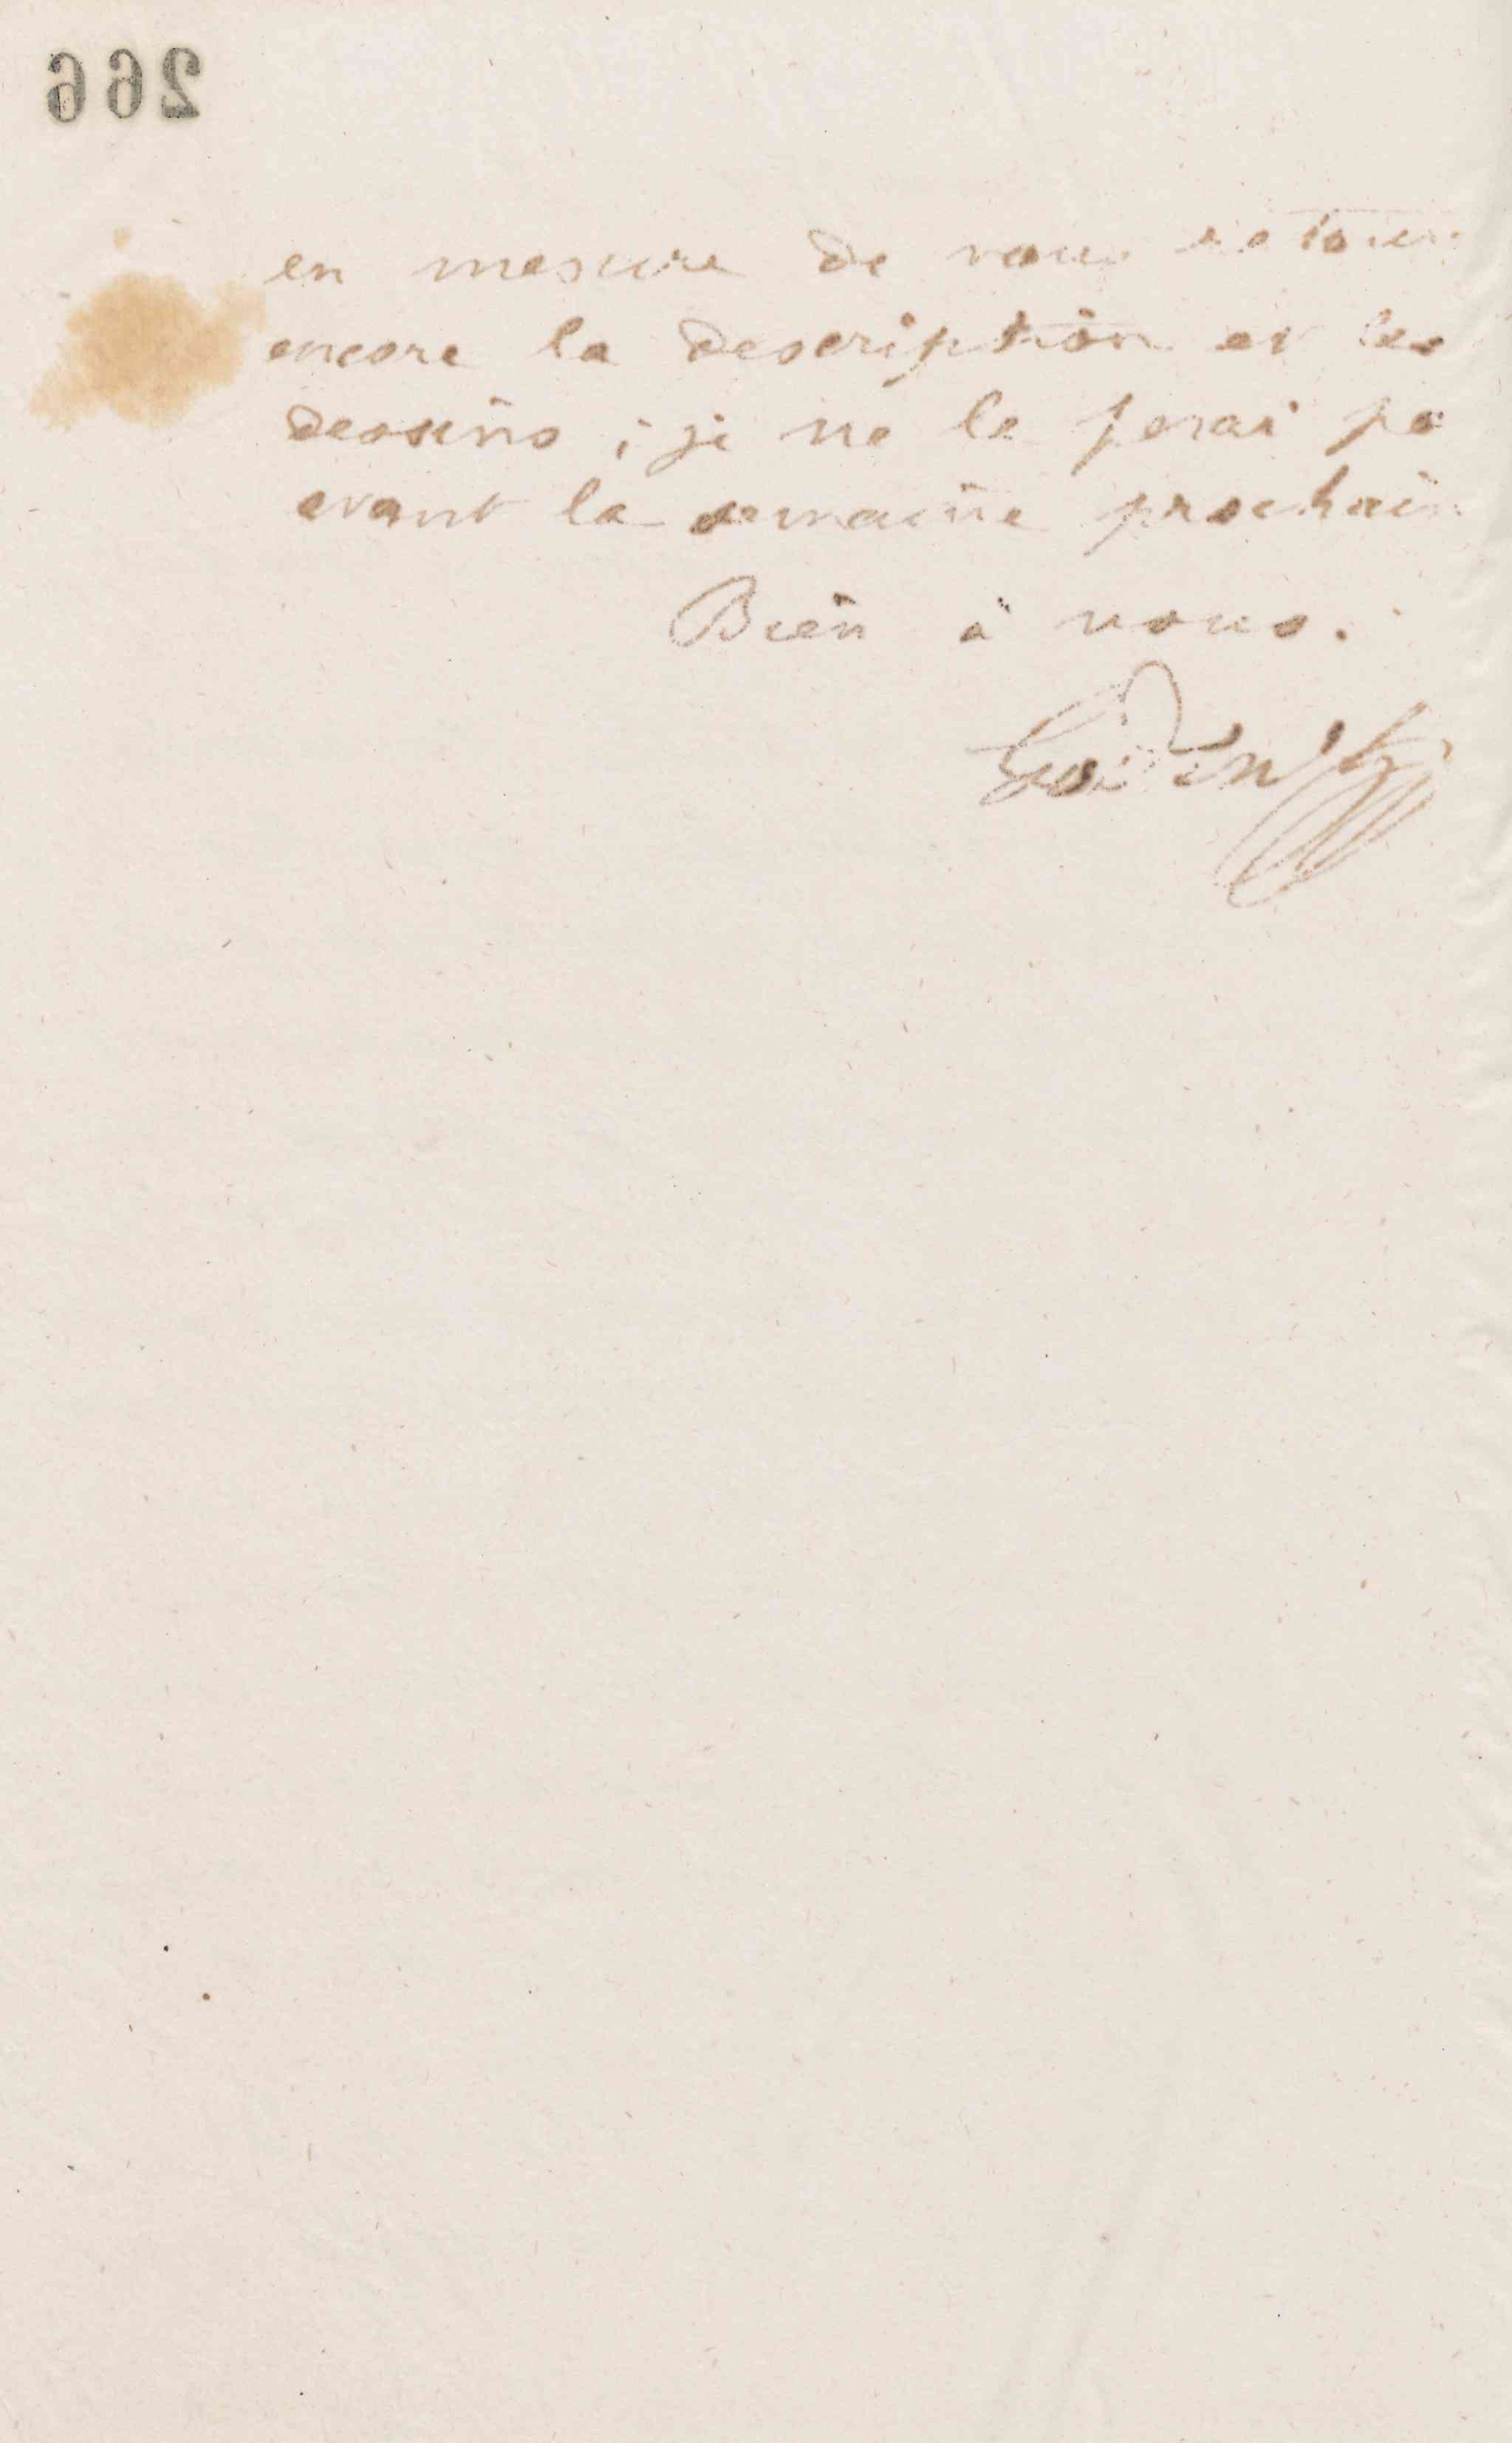 266
en mesure de vous retour
encore la description et les
dessins ; je ne le ferai pa
avant la semaine prochain
Bien à vous.